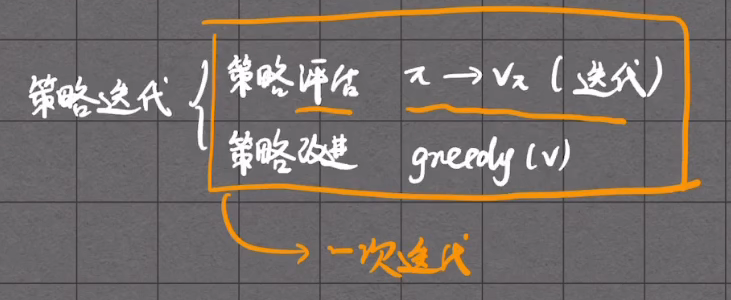 策略迭代
策略评估 π → Vπ (迭代)
策略改进 greedy (V)
一次迭代